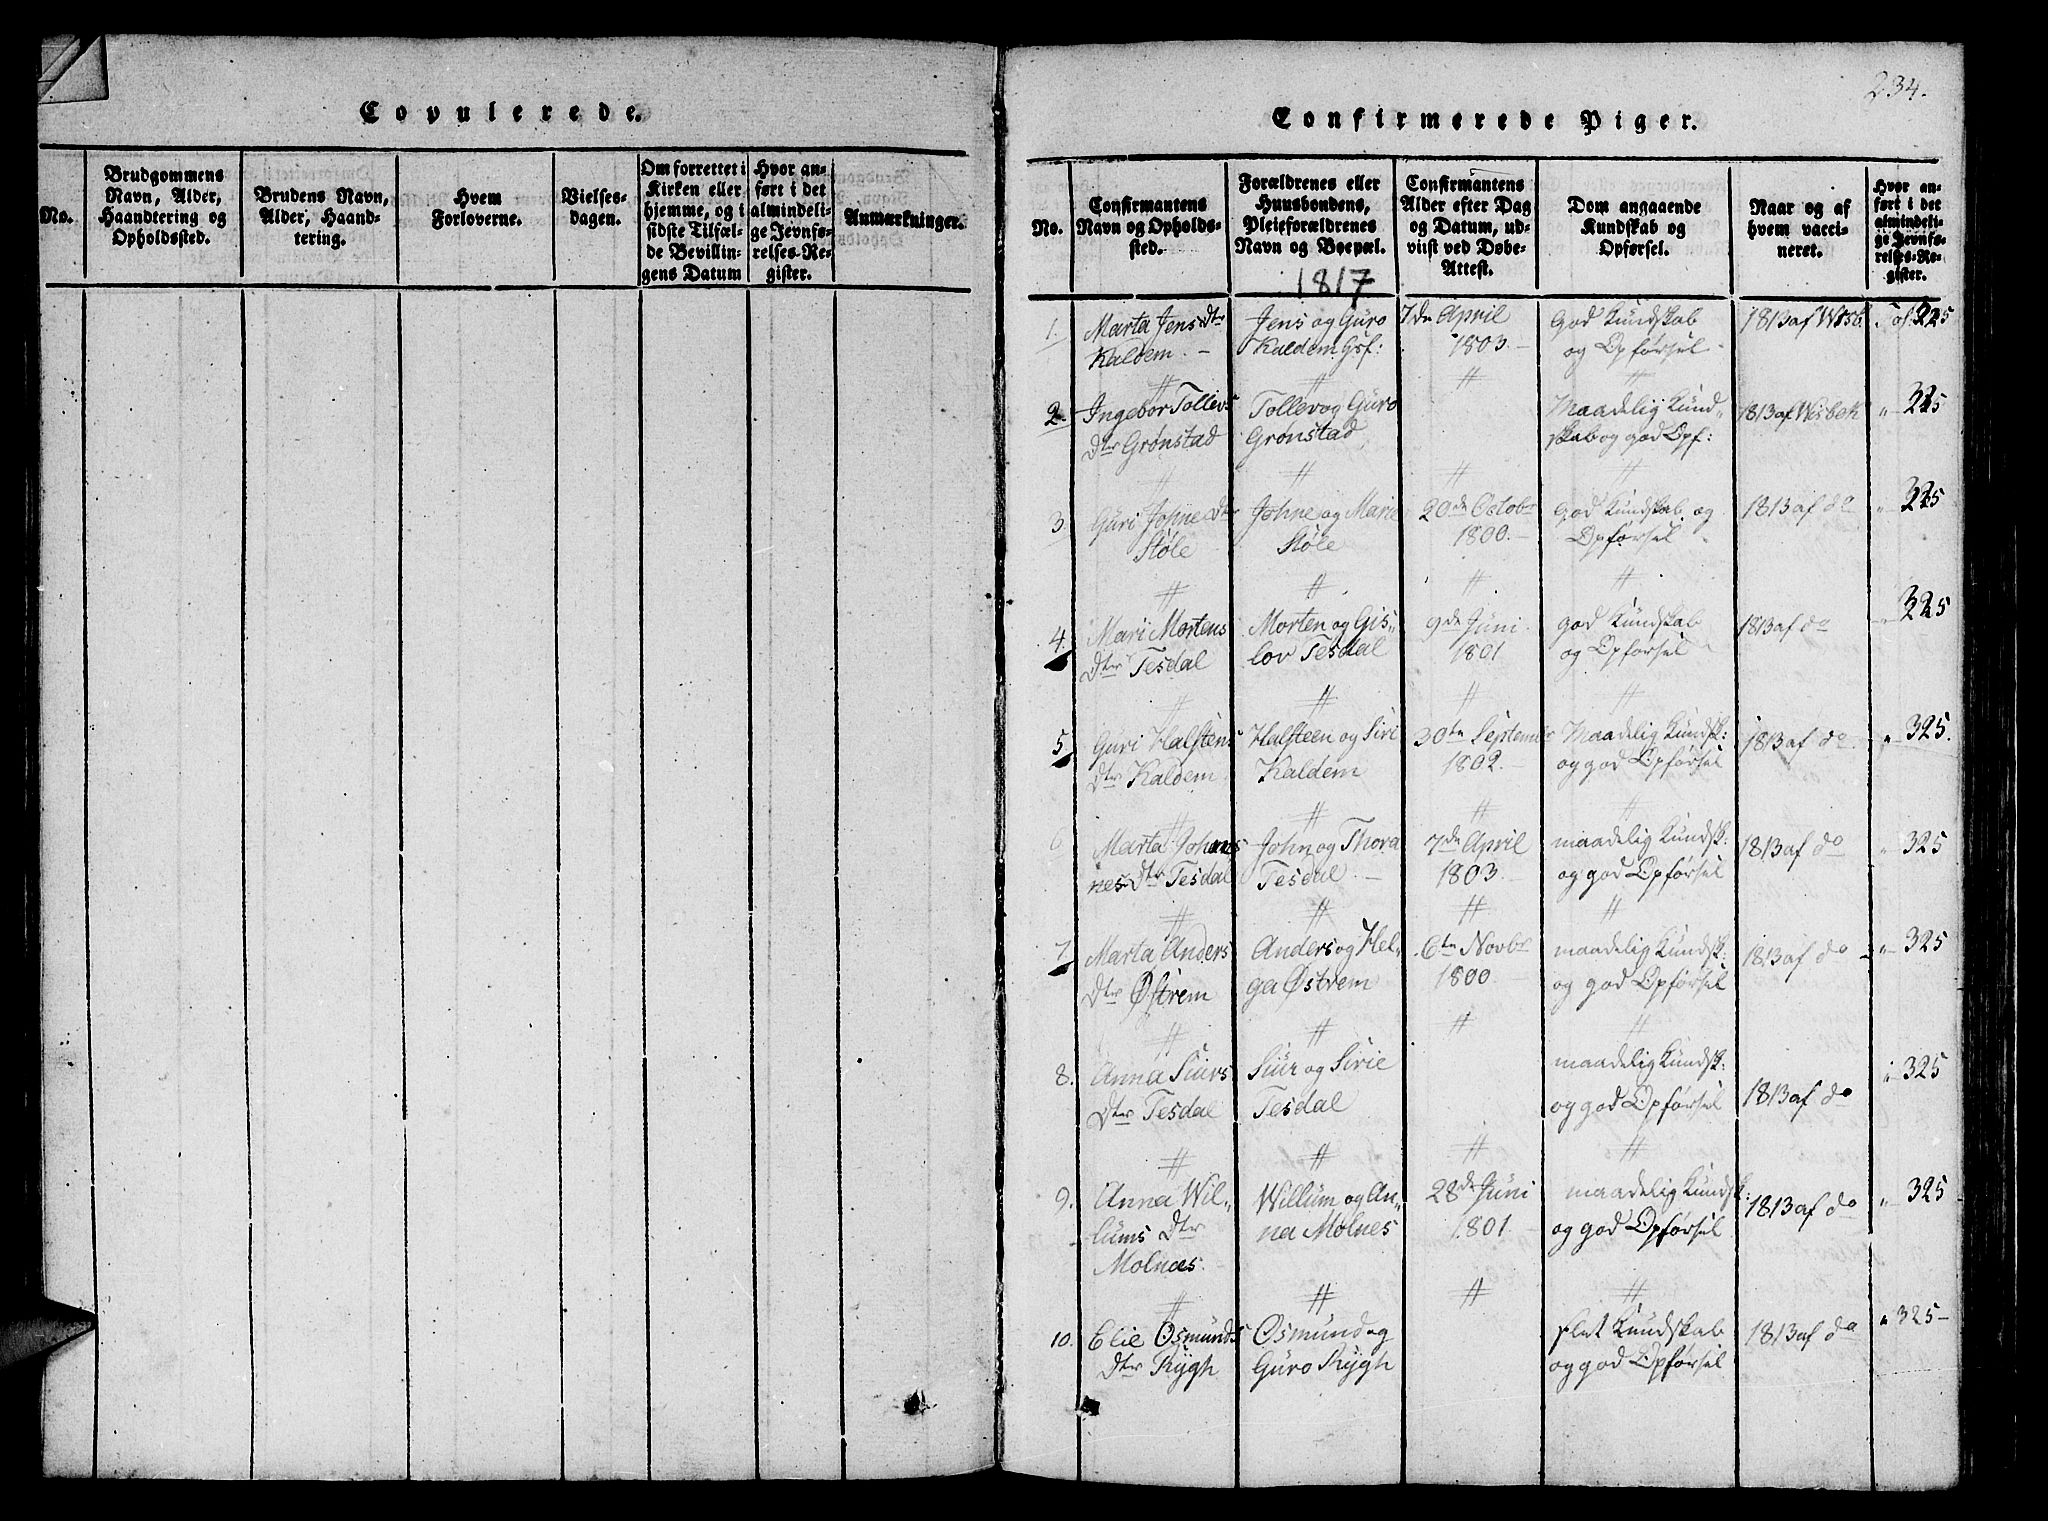 Copulerede.
No.
Brudgommens
Navn, Alder,
Haandtering og
Opholdssted.
Brudens Navn,
Alder, Haand-
tering.
Hvem
Forloverne.
Vielses-
dagen.
Om forrettet i
Kirken eller
hjemme, og i
sidste Tilfæl-
de Bevillin-
gens Datum
Hvor an-
ført i det
almindeli-
ge Jevnfø-
relses-Re-
gister.
Anmærkninger.
234.
Confirmerede Piger.
No.
Confirmantens
Navn og Opholds-
sted.
Forældrenes eller
Huusbondens,
Pleieforældrenes
Navn og Boepæl.
Confirmantens
Alder efter Dag
og Datum, ud-
viist ved Døbe-
Attest.
Dom angaaende
Kundskab og
Opførsel.
Naar og af
hvem vacci-
neret.
Hvor an-
ført i det
almindeli-
ge Jevnfø-
relses-Re-
gister.
1817
1. Marta Jens Dtr Jens og Guro 7de April God Kundskab 1813 af Wisb. Fol. 325
Kaldem. – Kaldem Gsf: 1803. – og Opførsel
2. Ingebor Tollevs Tollev og Guro Maadelig Kund- 1813 af Wisbek " 325
Dtr Grønstad Grønstad skab og god Opf:
3 Guri Johne Dtr Johne og Marie 20de Octobr God Kundskab og 1813 af do " 325
Støle Støle 1800. – Opførsel
4. Mari Mortens Morten og Gis- 9de Juni god Kundskab 1813 af do " 325
Dtr Tesdal lov Tesdal 1801 og Opførsel
5 Guri Halstens Halsteen og Siri 30te Septemr Maadelig Kundsk: 1813 af do " 325.
Dtr Kaldem Kaldem 1802. – og god Opførsel
6 Marta Johan- John og Thora 7de April maadelig Kundsk: 1813 af do " 325
nes Dtr Tesdal Tesdal – 1803. – og god Opførsel
7 Marta Anders Anders og Hel- 6te Novbr maadelig Kundsk: 1813 af do " 325
Dtr Østrem ga Østrem 1800 og god Opførsel
8. Anna Siurs Siur og Sirie maadelig Kundsk: " 325
Dtr Tesdal Tesdal og god Opførsel 1813 af do
9. Anna Wil- Willum og An- 28de Juni maadelig Kundsk: 1813 af do " 325
lums Dtr na Molnes 1801 og god Opførsel
Molnæs.
10. Elie Osmunds Osmund og slet Kundskab 1813 af do " 325–
Dtr Rygh Guro Rygh og god Opførsel